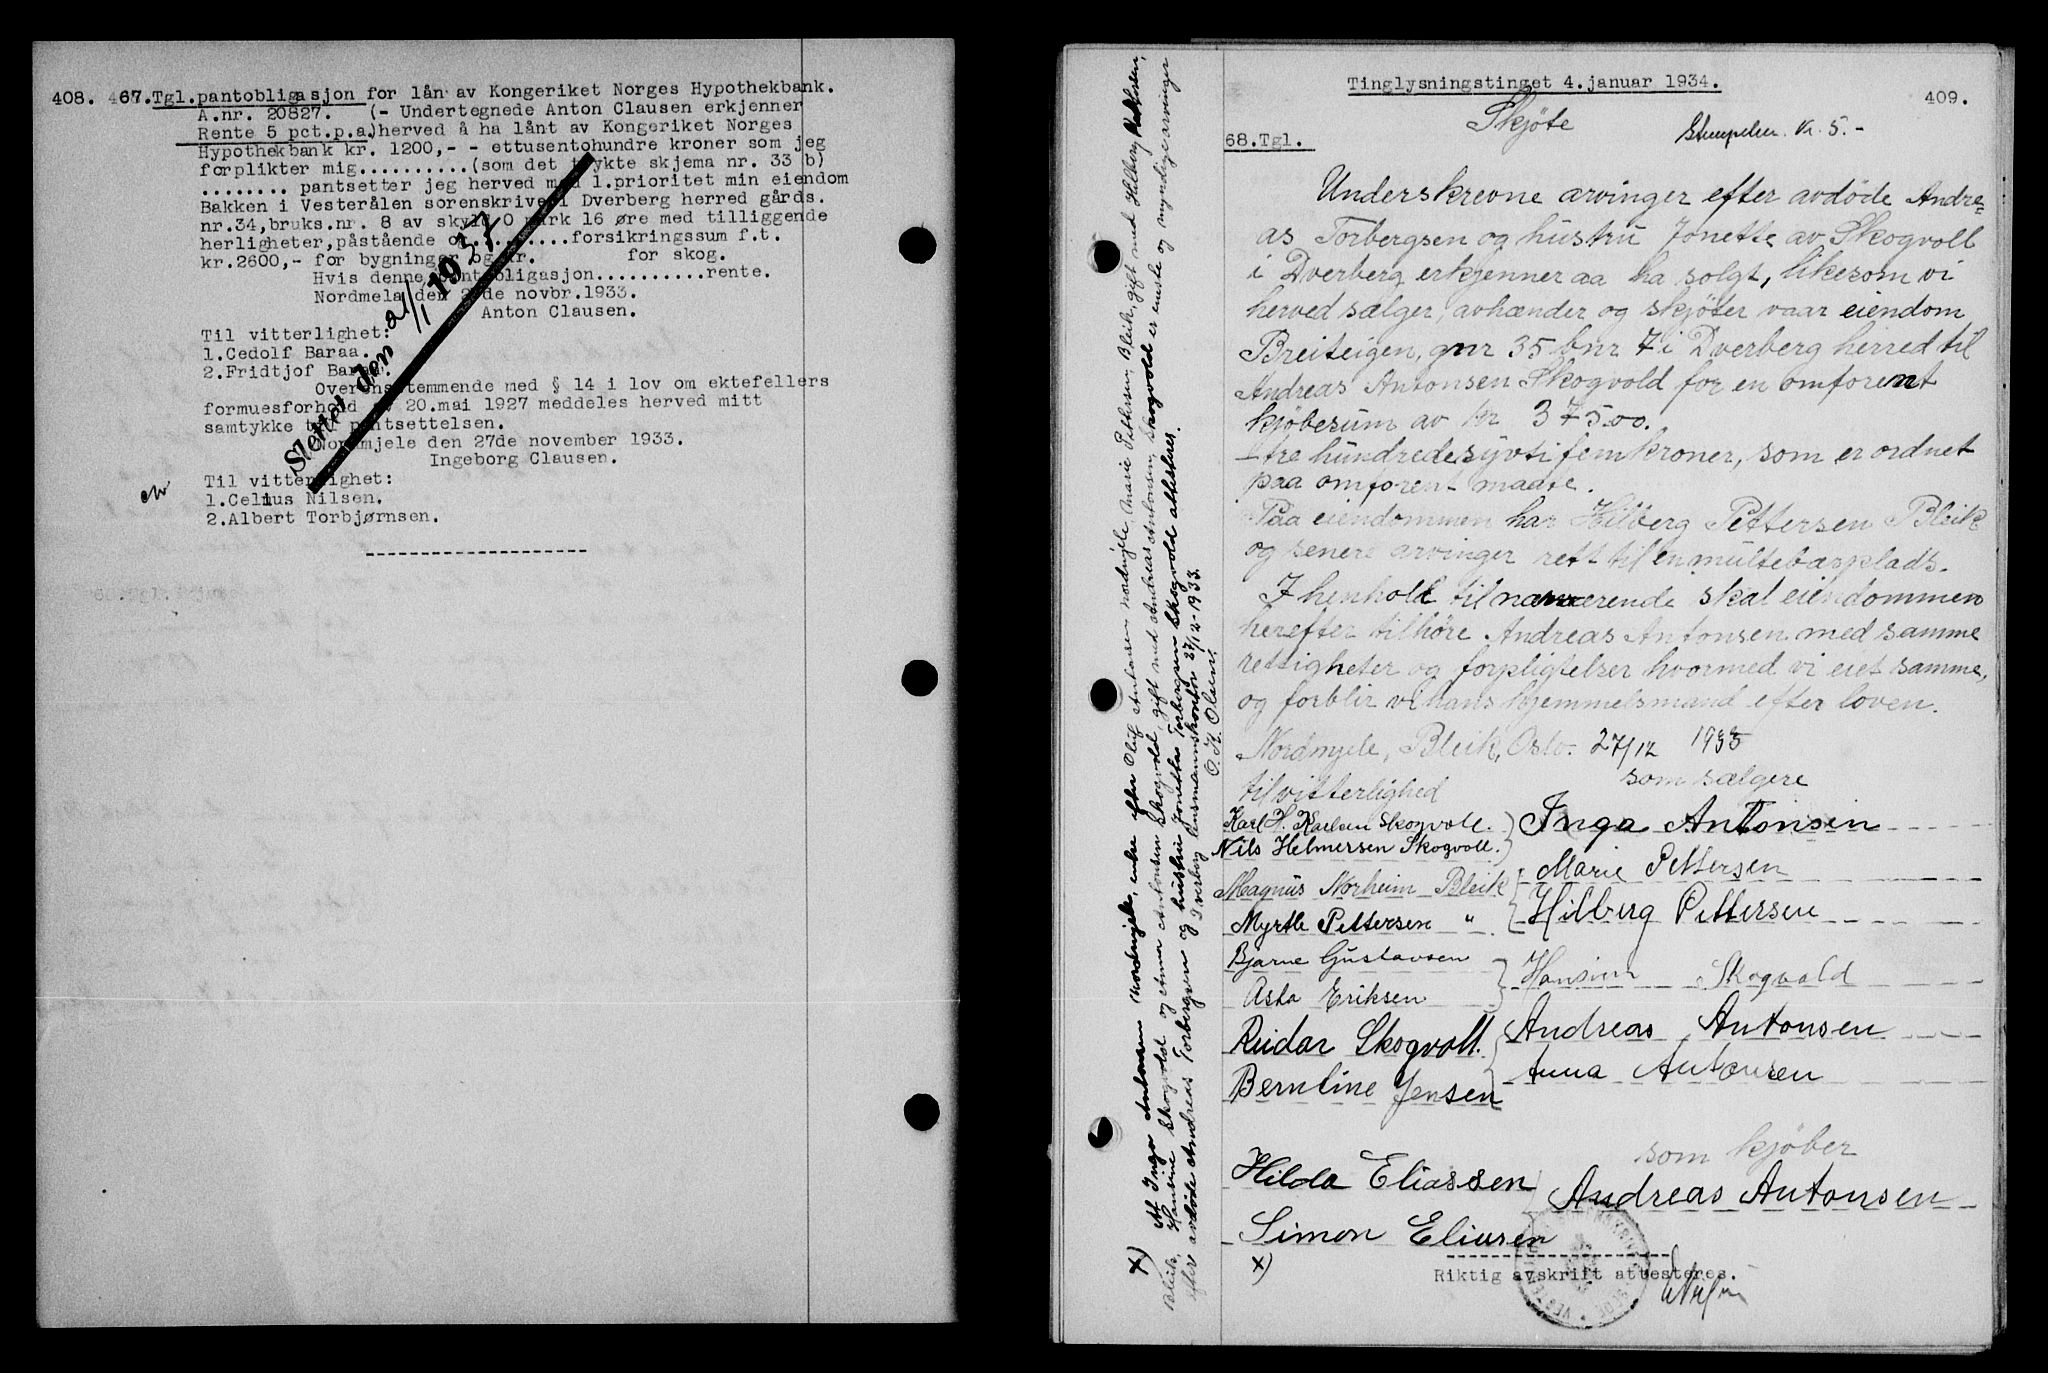 408. 467.Tgl.pantobligasjon for lån av Kongeriket Norges Hypothekbank.
A.nr. 20827. (- Undertegnede Anton Clausen erkjenner
Rente 5 pct.p.a.)herved å ha lånt av Kongeriket Norges
Hypothekbank kr. 1200,- - ettusentohundre kroner som jeg
forplikter mig..........(som det trykte skjema nr. 33 b)
........ pantsetter jeg herved med 1.prioritet min eiendom
Bakken i Vesterålen sorenskriveri Dverberg herred gårds.
nr.34,bruks.nr. 8 av skyld 0 mark 16 øre med tilliggende
herligheter,påstående o..........forsikringssum f.t.
kr.2600,- for bygninger og kr. for skog.
Hvis denne pantobligasjon...........rente.
Nordmela den 27de novbr.1933.
Anton Clausen.
Til vitterlighet:
1.Cedolf Baraa.
2.Fridtjof Baraa.
Overensstemmende med § 14 i lov om ektefellers
formuesforhold av 20.mai 1927 meddeles herved mitt
samtykke til pantsettelsen.
Nordmjele den 27de november 1933.
Ingeborg Clausen.
Til vitterlighet:
1.Celius Nilsen.
2.Albert Torbjørnsen.
Slettet den 21/1 1937
Tinglysningstinget 4.januar 1934.
409.
Skjöte
68.Tgl.
Stempelm. Kr. 5.-
Underskrevne arvinger efter avdöde Andre=
as Torbergsen og hustru Jonette av Skogvoll
i Dverberg erkjenner aa ha solgt, likesom vi
herved sælger, avhænder og skjöter vaar eiendom
Breiteigen, gnr 35 bnr 7 i Dverberg herred til
Andreas Antonsen Skogvold for en omforent
kjöbesum av kr 375.00.
- tre hundrede syvti fem kroner, som er ordnet
paa omforent maate.
Paa eiendommen har Hilberg Pettersen Bleik
og senere arvinger rett til en multebærplads.
I henhold til nærværende skal eiendommen
herefter tilhöre Andreas Antonsen med samme
rettigheter og forpligtelser hvormed vi eiet samme,
og forblir vi hans hjemmelsmand efter loven.
Nordmjele, Bleik, Oslo. 27/12 1933
som sælgere
til vitterlighed
Karl H. Karlsen Skogvoll. ) Inga Antonsen
Nils Helmersen Skogvoll. )
Marie Pettersen
Magnus Norheim Bleik
Myrtle Pettersen " Hilberg Pettersen
Bjarne Gustavsen
Hansine Skogvold
Asta Eriksen
Reidar Skogvoll. Andreas Antonsen
Berntine Jensen Anna Antonsen
som kjöber
Hilda Eliassen
Andreas Antonsen
Simon Eliasen
x)
Riktig avskrift attesteres.
x) At Inga Antonsen Nordmjele, enke efter Oluf Antonsen Nordmjele, Marie Pettersen, Bleik, gift med Hilberg Pettersen,
Bleik, Hansine Skogvold og Anna Antonsen Skogvold, gift med Andreas Antonsen, Skogvold er eneste og myndige arvinger
efter avdöde Andreas Torbergsen og hustru Jonette Torbergsen Skogvold attesteres.
Dverberg lensmannskontor 27/12-1933.
O. K. Olsen.